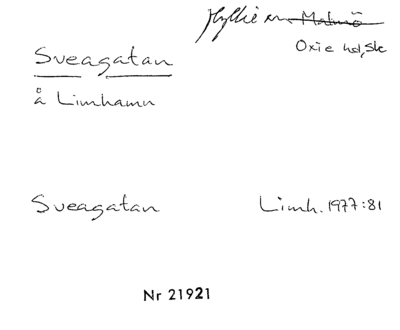 Hyllie sn Malmö
Oxie hd, Sk
Sveagatan
å Limhamn
Sveagatan
Limh. 1977:81
Nr 21921